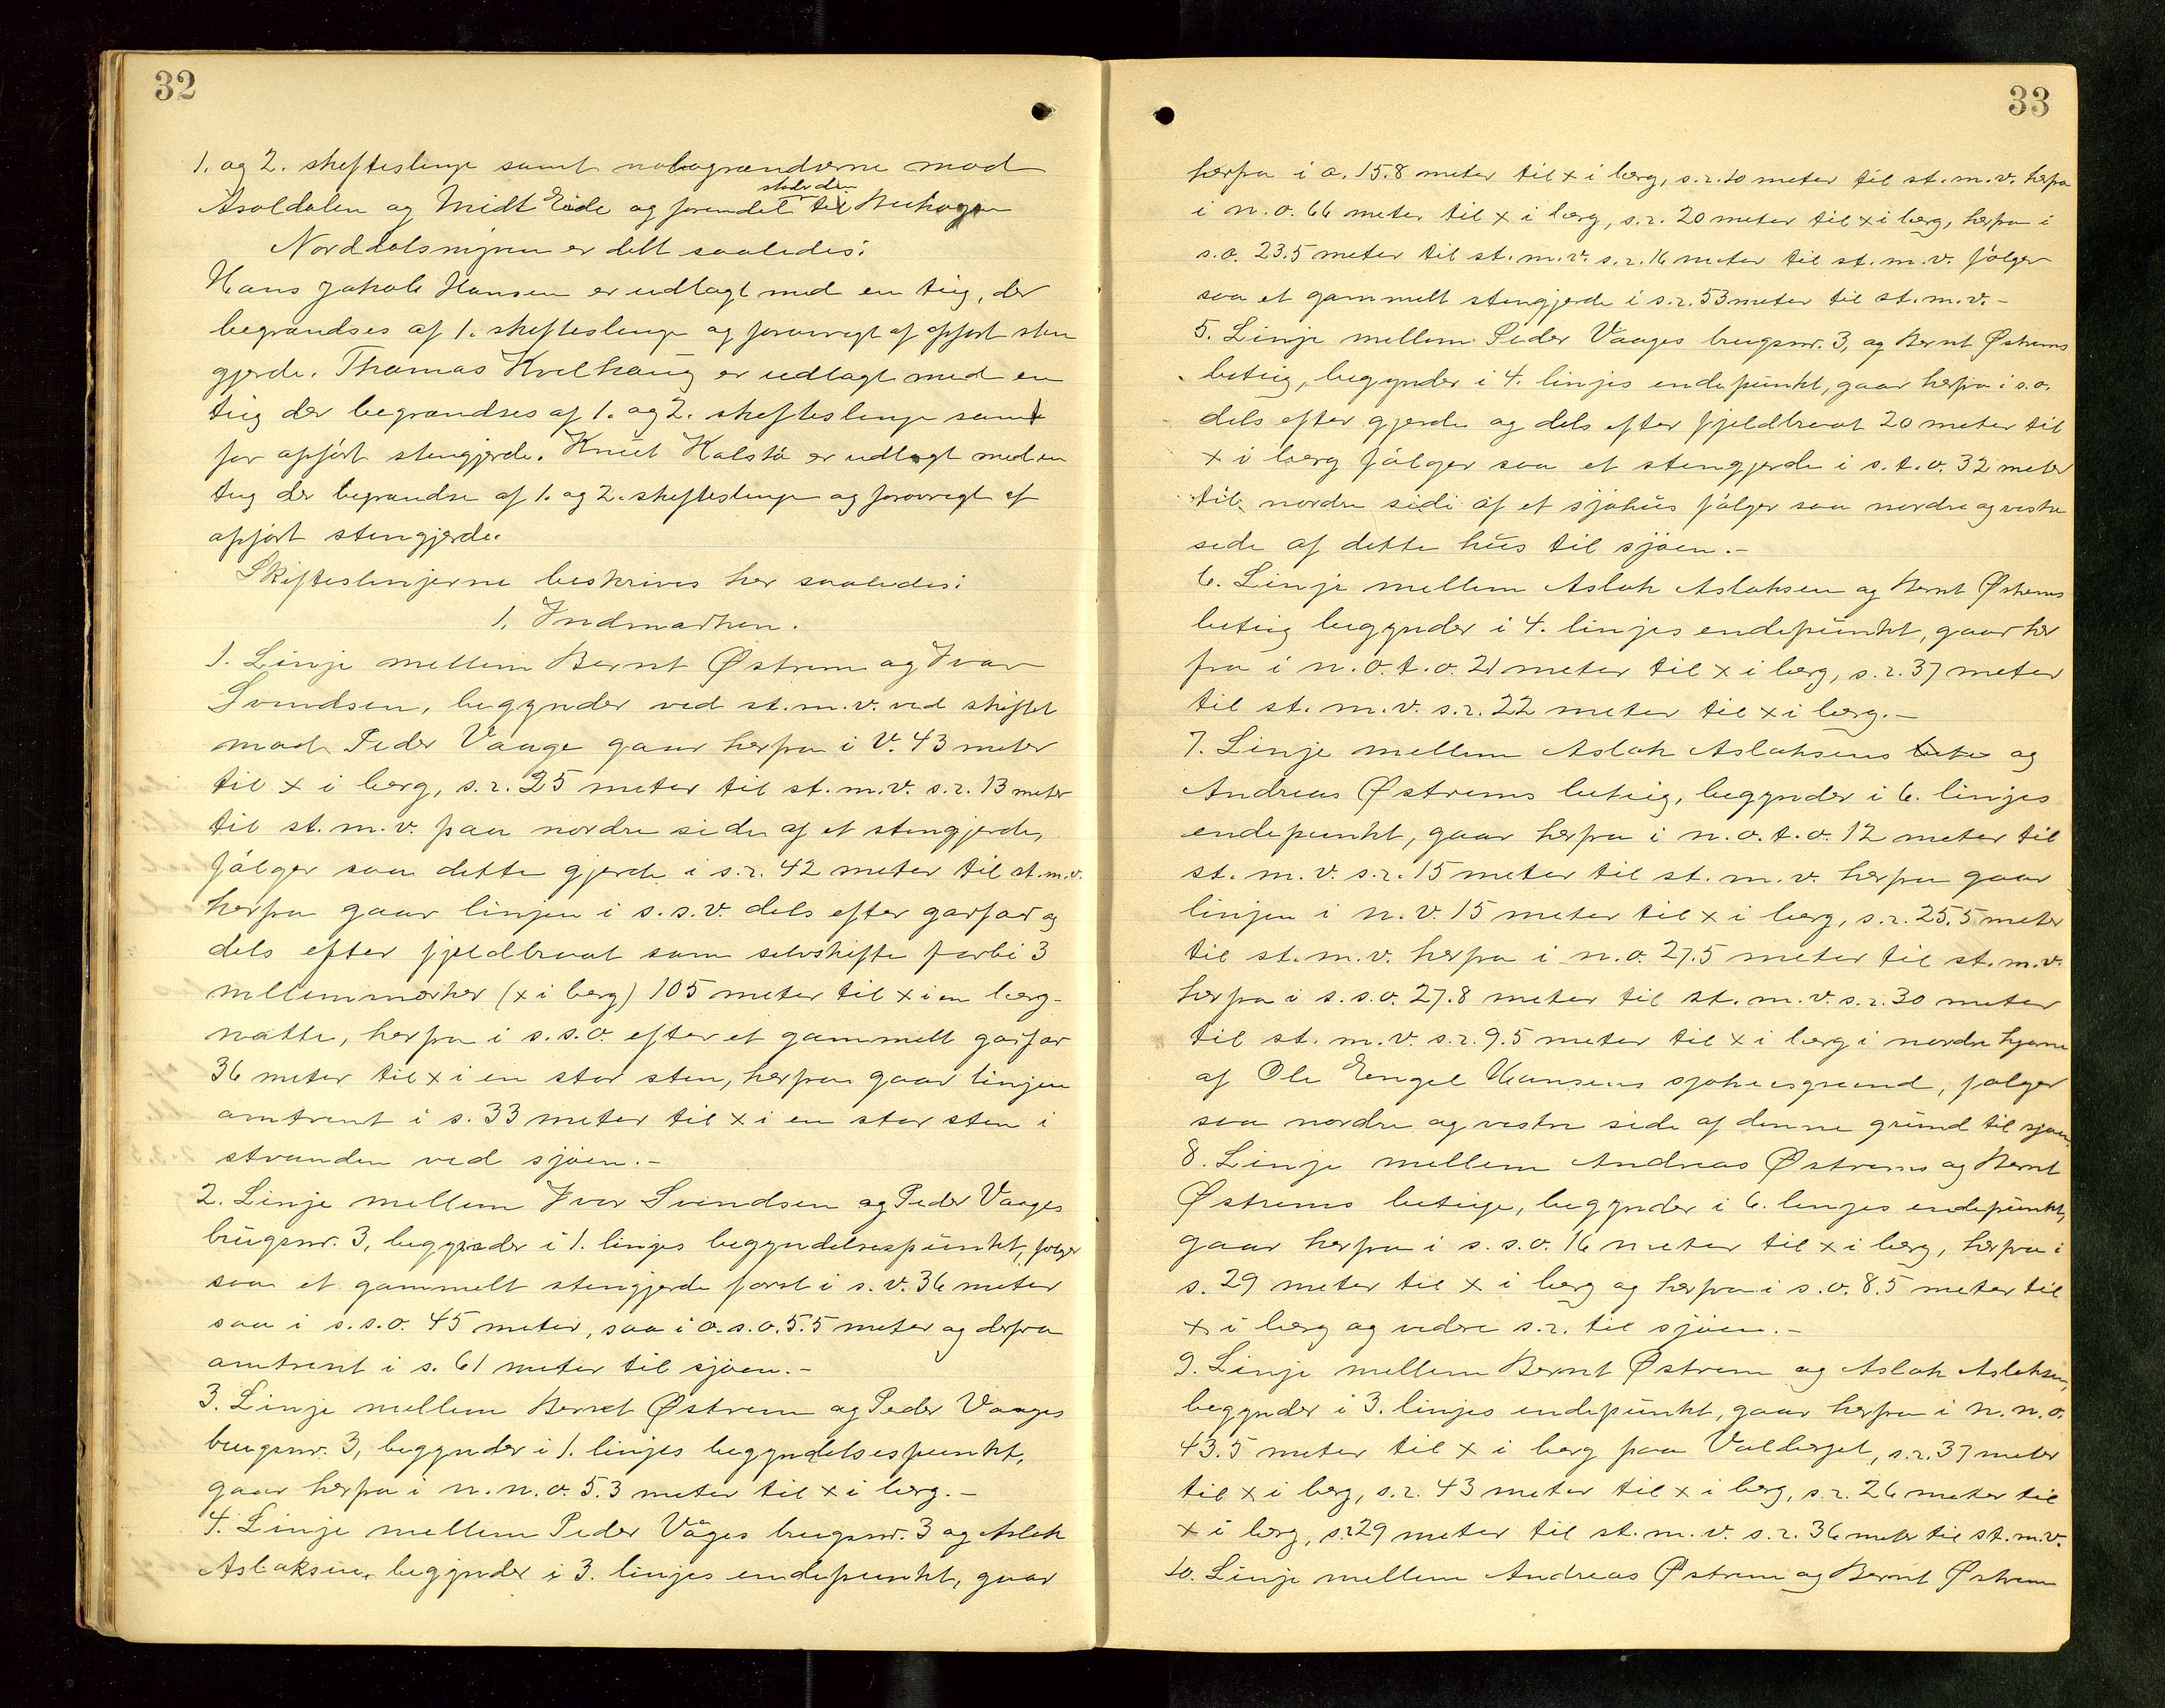 32
1. og 2. skifteslinje samt nabogrændserne mod
Asoldalen og Midt Eide og forendet
støder den
til
Norddalsmyren er delt saaledes:
Hans Jakob Hansen er udlagt med en teig, der
begrændses af 1. skifteslinje og forøvrigt af opført sten
gjerde. Thomas Kvelhaug er udlagt med en
teig der begrændses af 1. og 2. skifteslinje samt
for opført stengjerde. Knut Kalstø er udlagt med en
teig der begrændses af 1. og 2. skifteslinje og forøvrigt af
opført stengjerde.
Skifteslinjerne beskrives her saaledes:
1. Indmarken.
1. Linje mellem Bernt Østrem og Ivar
Svendsen, begynder ved st. m. v. ved skiftet
mod Peder Vaage gaar herfra i V. 43 meter
til x i berg, s. r. 25 meter til st. m. v. s. r. 13 meter
til st. m. v. paa nordre side af et stengjerde,
følger saa dette gjerde i s. r. 42 meter til st. m. v.
herfra gaar linjen i s. s. v. dels efter garfar og
dels efter fjeldbraat som selvskifte forbi 3
mellemmerker (x i berg) 105 meter til x i en berg-
natte, herfra i s. s. o. efter et gammelt garfar
36 meter til x i en stor sten, herfra gaar linjen
omtrent i s. 33 meter til x i en stor sten i
stranden ved sjøen.-
2. Linje mellem Ivar Svendsen og Peder Vaages
brugsnr. 3, begynder i 1. linjes begyndelsespunkt, følger
saa et gammelt stengjerde først i s. v. 36 meter
saa i s. s. o. 45 meter, saa i o. s. o. 5.5 meter og derfra
omtrent i s. 61 meter til sjøen.-
3. Linje mellem Bernt Østrem og Peder Vaages
brugsnr. 3, begynder i 1. linjes begyndelsespunkt,
gaar herfra i n. n. o. 5.3 meter til x i berg.-
4. Linje mellem Peder Våges brugsnr. 3 og Aslak
Aslaksen, begynder i 3. linjes endepunkt, gaar
33
herfra i o. 15.8 meter til x i berg, s. r. 10 meter til st. m. v. herfra
i n. o. 66 meter til x i berg, s. r. 20 meter til x i berg, herfra i
s. o. 23.5 meter til st. m. v. s. r. 16 meter til st. m. v. følger
saa et gammelt stengjerde i s. r. 53 meter til st. m. v.-
5. Linje mellem Peder Vaages brugsnr. 3, og Bernt Østrems
bøteig, begynder i 4. linjes endepunkt, gaar herfra i s. o.
dels efter gjerde og dels efter fjeldbraat 20 meter til
x i berg følger saa et stengjerde i s. t. o. 32 meter
til nordre side af et sjøhus følger saa nordre og vestre
side af dette hus til sjøen.-
6. Linje mellem Aslak Aslaksen og Bernt Østrems
bøteig begynder i 4. linjes endepunkt, gaar her
fra i n. o. t. o. 21 meter til x i berg, s. r. 37 meter
til st. m. v. s. r. 22 meter til x i berg.-
7. Linje mellem Aslak Aslaksens bøtei og
Andreas Østrems bøteig, begynder i 6. linjes
endepunkt, gaar herfra i n. o. t. o. 12 meter til
st. m. v. s. r. 15 meter til st. m. v. herfra gaar
linjen i n. v. 15 meter til x i berg, s. r. 25.5 meter
til st. m. v. herfra i n. o. 27.5 meter til st. m. v.
herfra i s. s. o. 27.8 meter til st. m. v. s. r. 30 meter
til st. m. v. s. r. 9.5 meter til x i berg i nordre hjørne
af Ole Engel Hansens sjøhusgrund, følger
saa nordre og vestre side af denne grund til sjøen
8. Linje mellem Andreas Østrems og Bernt
Østrems bøteige, begynder i 6. linjes endepunkt,
gaar herfra i s. s. o. 16 meter til x i berg, herfra i
s. 29 meter til x i berg og herfra i s. o. 8.5 meter til
x i berg og videre s. r. til sjøen.-
9. Linje mellem Bernt Østrem og Aslak Aslaksen,
begynder i 3. linjes endepunkt, gaar herfra i n. n. o.
43.5 meter til x i berg paa Valberget, s. r. 37 meter
til x i berg, s. r. 43 meter til x i berg, s. r. 26 meter til
x i berg, s. r. 29 meter til st. m. v. s. r. 36 meter til st. m. v.
10. Linje mellem Andreas Østrem og Bernt Østrem